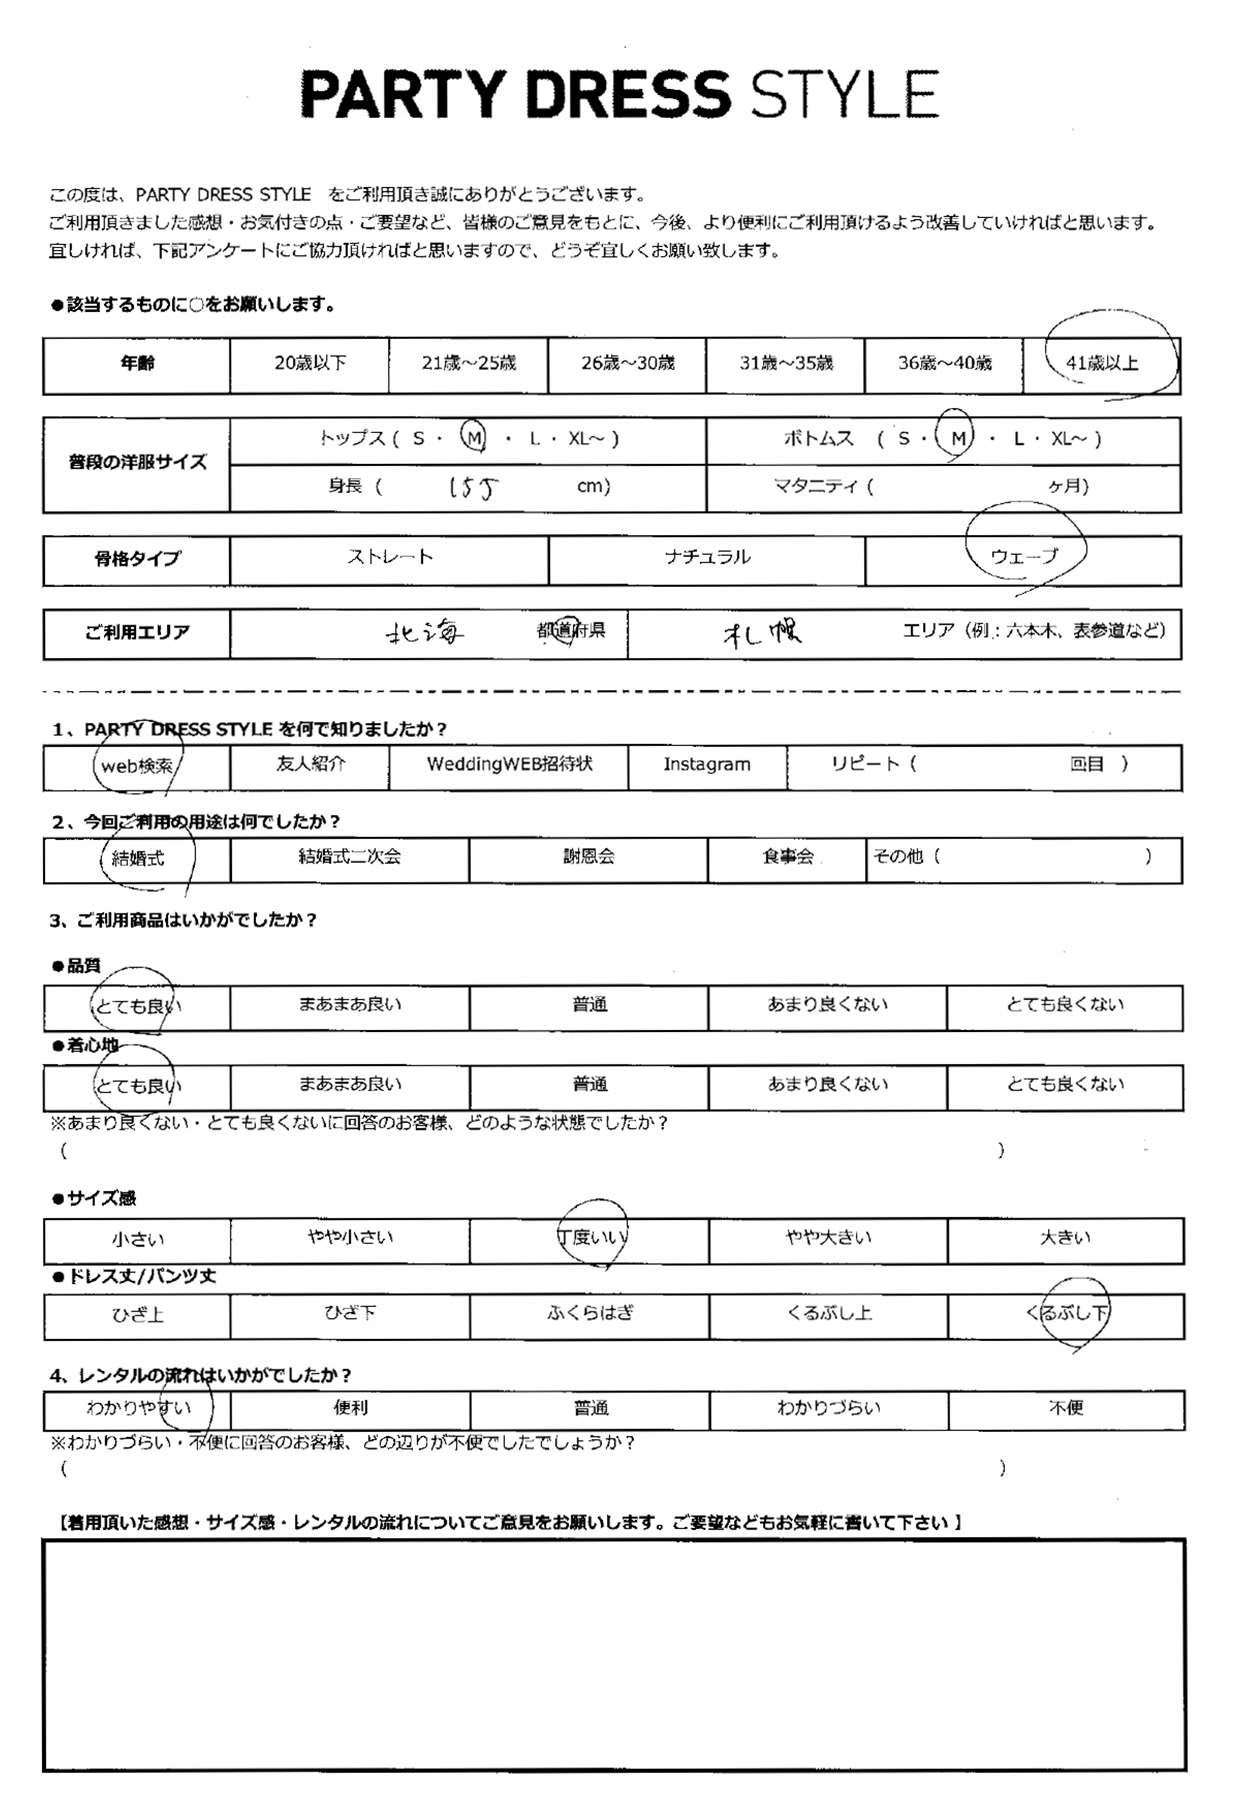 PARTY DRESS STYLE
この度は、PARTY DRESS STYLE をご利用頂き誠にありがとうございます。
ご利用頂きました感想・お気付きの点・ご要望など、皆様のご意見をもとに、今後、より便利にご利用頂けるよう改善していければと思います。
宜しければ、下記アンケートにご協力頂ければと思いますので、どうぞ宜しくお願い致します。
●該当するものに○をお願いします。
年齢 20歳以下 21歳～25歳 26歳～30歳 31歳～35歳 36歳～40歳 41歳以上
普段の洋服サイズ トップス ( S ・ M ・ L ・ XL～ ) ボトムス ( S ・ M ・ L ・ XL～ )
身長 ( 155 cm) マタニティ ( ヶ月)
骨格タイプ ストレート ナチュラル ウェーブ
ご利用エリア 北海 都道府県 札幌 エリア（例：六本木、表参道など）
1、PARTY DRESS STYLE を何で知りましたか？
web検索 友人紹介 WeddingWEB招待状 Instagram リピート ( 回目 )
2、今回ご利用の用途は何でしたか？
結婚式 結婚式二次会 謝恩会 食事会 その他 ( )
3、ご利用商品はいかがでしたか？
●品質
とても良い まあまあ良い 普通 あまり良くない とても良くない
●着心地
とても良い まあまあ良い 普通 あまり良くない とても良くない
※あまり良くない・とても良くないに回答のお客様、どのような状態でしたか？
( )
●サイズ感
小さい やや小さい 丁度いい やや大きい 大きい
●ドレス丈/パンツ丈
ひざ上 ひざ下 ふくらはぎ くるぶし上 くるぶし下
4、レンタルの流れはいかがでしたか？
わかりやすい 便利 普通 わかりづらい 不便
※わかりづらい・不便に回答のお客様、どの辺りが不便でしたでしょうか？
( )
【着用頂いた感想・サイズ感・レンタルの流れについてご意見をお願いします。ご要望などもお気軽に書いて下さい 】